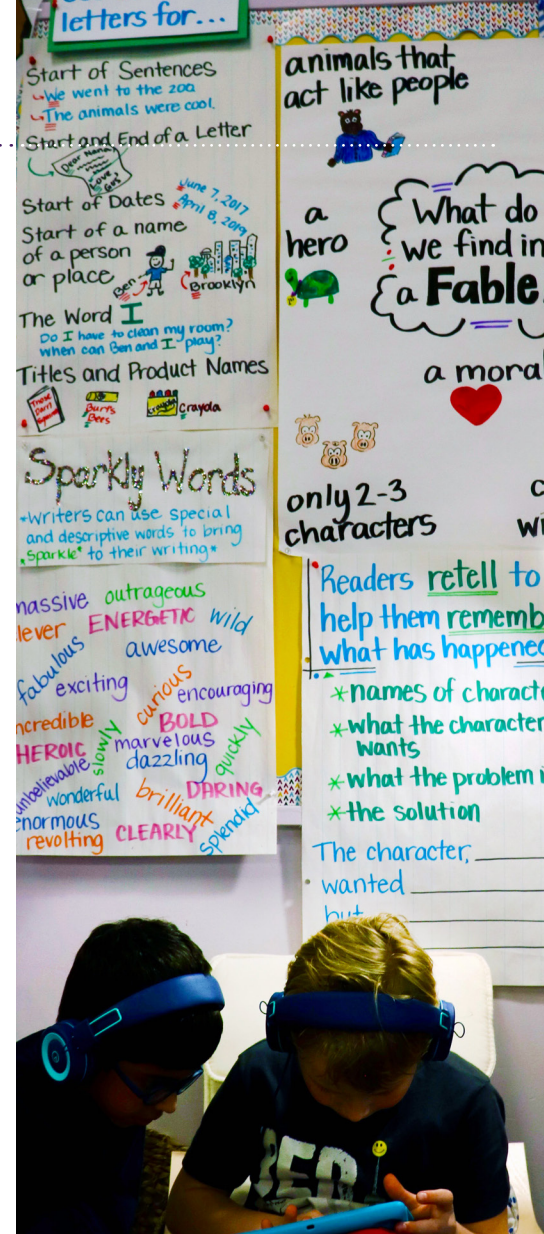 letters for...
Start of Sentences
We went to the zoo
The animals were cool.
Start and End of a Letter
Dear Nana,
Love
Start of Dates
June 7, 2017
April 8, 2019
Start of a name
of a person
or place
Ben
Brooklyn
The Word I
Do I have to clean my room?
When can Ben and I play?
Titles and Product Names
Burt's
Bees
Crayola
Crayola
Sparkly Words
*Writers can use special
and descriptive words to bring
*sparkle* to their writing*
massive outrageous
lever ENERGETIC wild
fabulous awesome
exciting curious encouraging
ncredible BOLD
HEROIC slowly marvelous quickly
unbelievable dazzling
wonderful brilliant DARING
enormous splendid
revolting CLEARLY
animals that
act like people
a
hero
What do
we find in
a Fable
a moral
only 2-3
characters
c
wi
Readers retell to
help them rememb
what has happened
*names of characte
*what the character
wants
*what the problem i
*the solution
The character,
wanted
but